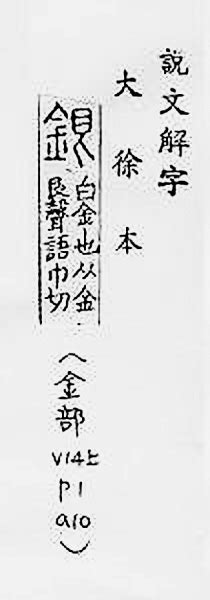 說文解字
大徐本
銀 白金也从金
𥃩聲語巾切
(金部
V14上
P1
a10)